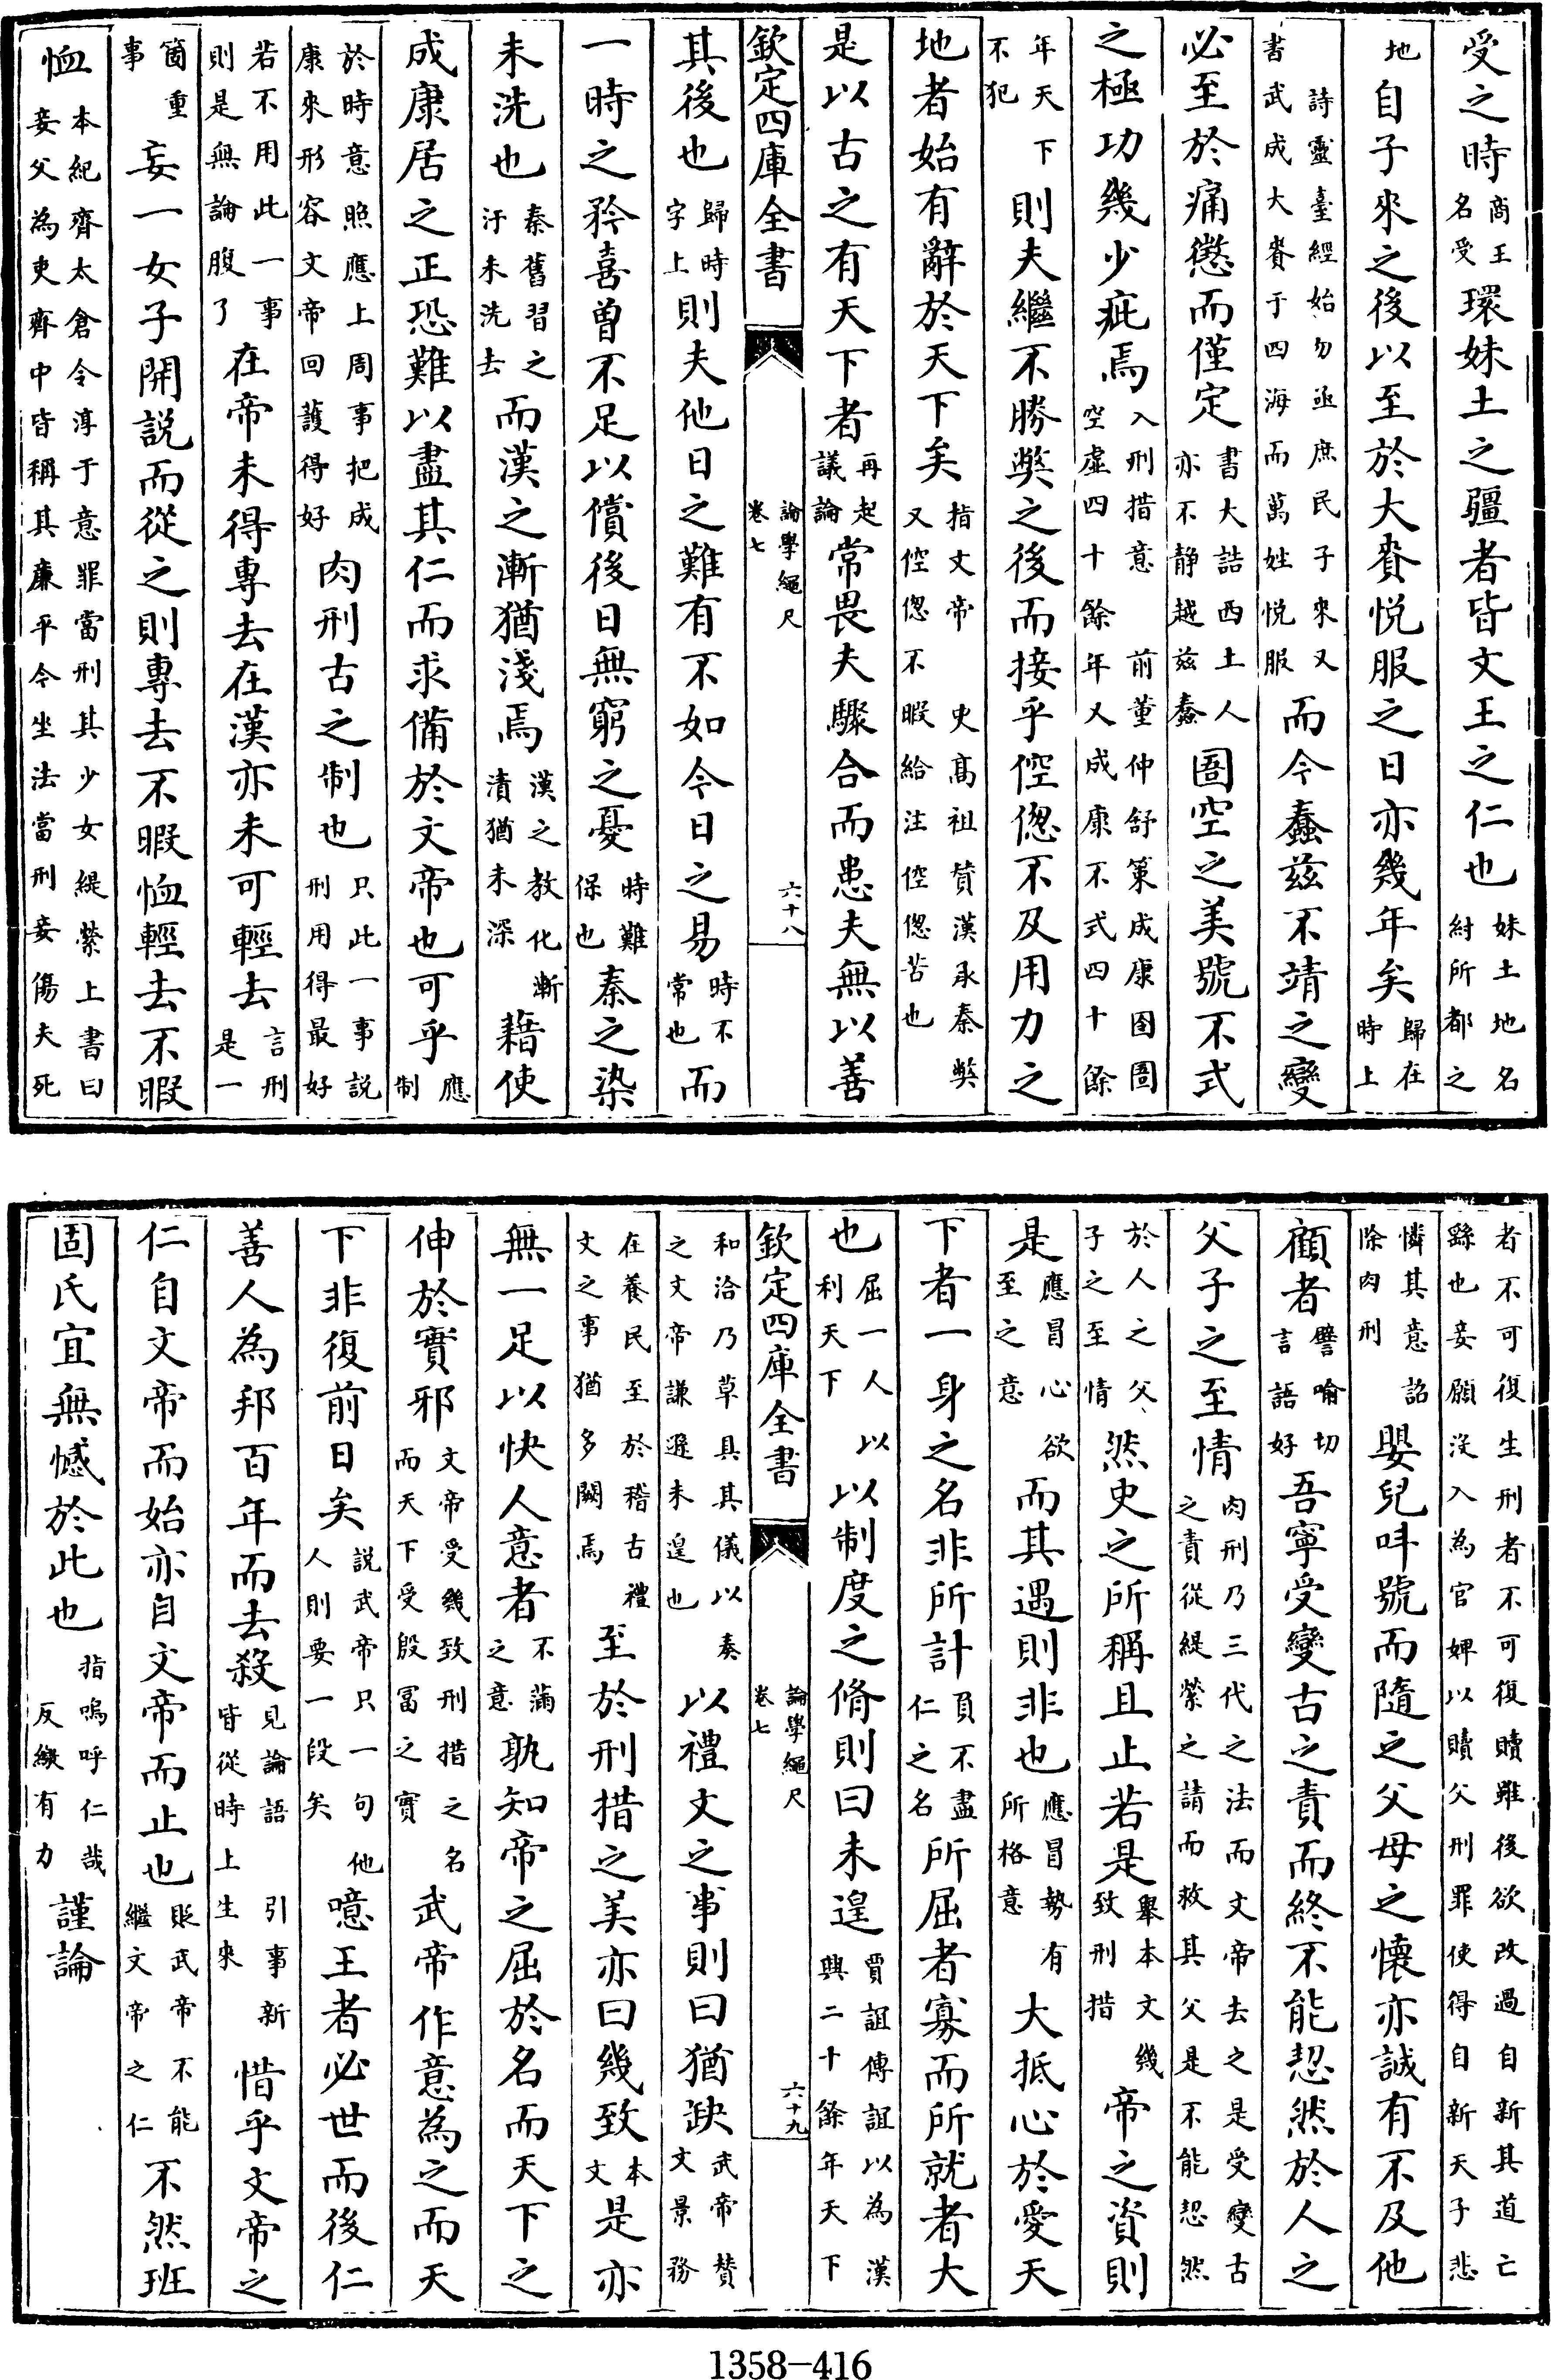 受之時商王名受環妹土之疆者皆文王之仁也妹土地名紂所都之
地自子來之後以至於大賚悅服之日亦幾年矣歸在時上
詩靈臺經始勿亟庶民子來又書武成大賚于四海而萬姓悅服而今蠢兹不靖之變
必至於痛懲而僅定書大誥西土人亦不静越兹蠢圄空之美號不式
之極功幾少疵焉入刑措意空虛四十餘年前董仲舒策成康囹圄又成康不式四十餘
年天下不犯則夫繼不勝獘之後而接乎倥偬不及用力之
地者始有辭於天下矣指文帝又倥偬不暇史髙祖贊漢承秦獘給注倥偬苦也
是以古之有天下者再起議論常畏夫驟合而患夫無以善
欽定四庫全書 論學繩尺卷七 六十八
其後也歸時字上則夫他日之難有不如今日之易時不常也而
一時之矜喜曾不足以償後日無窮之憂時難保也秦之染
未洗也秦舊習之汙未洗去而漢之漸猶淺焉漢之教化漸漬猶未深藉使
成康居之正恐難以盡其仁而求備於文帝也可乎應制
於時意照應上周事把成康來形容文帝回護得好肉刑古之制也只此一事説刑用得最好
若不用此一事則是無論腹了在帝未得專去在漢亦未可輕去言刑是一
箇重事妄一女子開説而從之則專去不暇恤輕去不暇
恤本紀齊太倉令淳于意罪當刑其少女緹縈上書曰妾父為吏齊中皆稱其亷平今坐法當刑妾傷夫死
者不可復生刑者不可復贖雖後欲改過自新其道亡繇也妾願沒入為官婢以贖父刑罪使得自新天子悲
憐其意詔除肉刑嬰兒呌號而隨之父母之懷亦誠有不及他
顧者譬喻切言語好吾寧受變古之責而終不能恝然於人之
父子之至情肉刑乃三代之法而文帝去之是受變古之責從緹縈之請而救其父是不能恝然
於人之父子之至情然史之所稱且止若是舉本文幾致刑措帝之資則
是應冒心欲至之意而其遇則非也應冒勢有所格意大抵心於愛天
下者一身之名非所計員不盡仁之名所屈者寡而所就者大
也屈一人以利天下以制度之脩則曰未遑賈誼傳誼以為漢興二十餘年天下
欽定四庫全書 論學繩尺卷七 六十九
和洽乃草具其儀以奏之文帝謙遜未遑也以禮文之事則曰猶缺武帝贊文景務
在養民至於稽古禮文之事猶多闕焉至於刑措之美亦曰幾致本文是亦
無一足以快人意者不滿之意孰知帝之屈於名而天下之
伸於實邪文帝受幾致刑措之名而天下受殷富之實武帝作意為之而天
下非復前日矣説武帝只一句他人則要一段矣噫王者必世而後仁
善人為邦百年而去殺見論語引事新皆從時上生來惜乎文帝之
仁自文帝而始亦自文帝而止也貶武帝不能繼文帝之仁不然班
固氏宜無憾於此也指嗚呼仁哉反繳有力謹論
1358-416